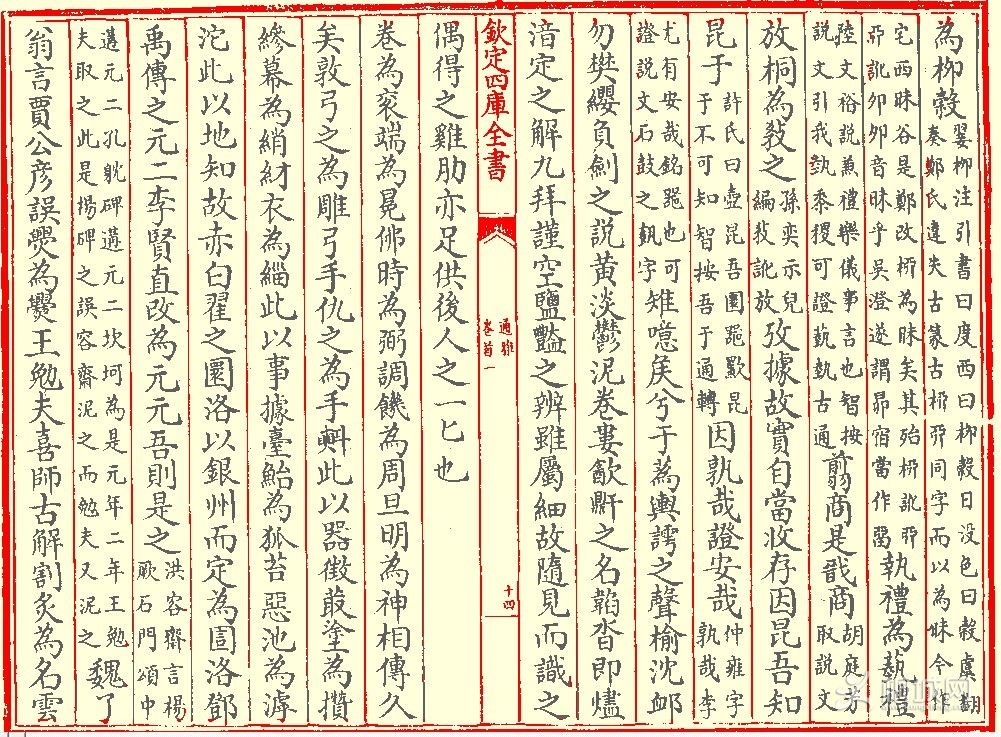 為柳穀翣柳注引書曰度西曰柳穀日没色曰穀虞翻
奏鄭氏違失古篆古桺丣同字而以為昧今作
宅西昧谷是鄭改桺為昧矣其殆桺訛丣
丣訛卯卯音昧乎吳澄遂謂昴宿當作畱執禮為埶禮
陸文裕說兼禮樂儀事言也智按
說文引我埶黍稷可證埶執古通翦商是戩商胡庭
取說文
放桐為敎之孫奕示兒
編敎訛放攷據故實自當收存因昆吾知
昆于許氏曰壺昆吾圜器歟昆
于不可知智按吾于通轉因孰哉證安哉仲雍字
孰哉李
尤有安哉銘器也可
證說文石鼓之字雉噫矦兮于蒍輿謣之聲榆沈䘏
勿樊纓負劍之說黃淡鬱泥卷婁歈鼾之名韜沓即燼
湆定之解九拜謹空鹽豔之辨雖屬細故隨見而識之
欽定四庫全書
通雅
卷首一
十四
偶得之雞肋亦足供後人之一匕也
卷為衮端為冕佛時為弼調饑為周旦明為神相傳久
矣敦弓之為雕弓手仇之為手㪺此以器徴菆塗為攢
縿幕為綃紂衣為緇此以事據臺鮐為狐苔惡池為滹
沱此以地知故赤白翟之圜洛以銀州而定為圁洛鄧
禹傳之元二李賢直改為元元吾則是之洪容齋言楊
厥石門頌中
遘元二孔躭碑遘元二坎坷為是元年二年王勉
夫取之此是楊碑之誤容齋泥之而勉夫又泥之魏了
翁言賈公彦誤爂為爨王勉夫喜師古解割炙為名雲